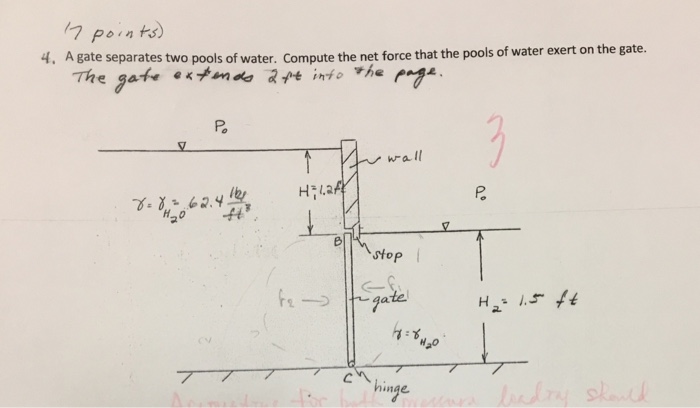 (7 points)
4. A gate separates two pools of water. Compute the net force that the pools of water exert on the gate.
The gate extends 2 ft into the page.
P₀
wall
3
γ = γ H₂O = 62.4 lbf/ft³
H₁ = 1.2 ft
P₀
B
stop
F₂ →
← F₁
gate
H₂ = 1.5 ft
γ = γ H₂O
C
hinge
for both